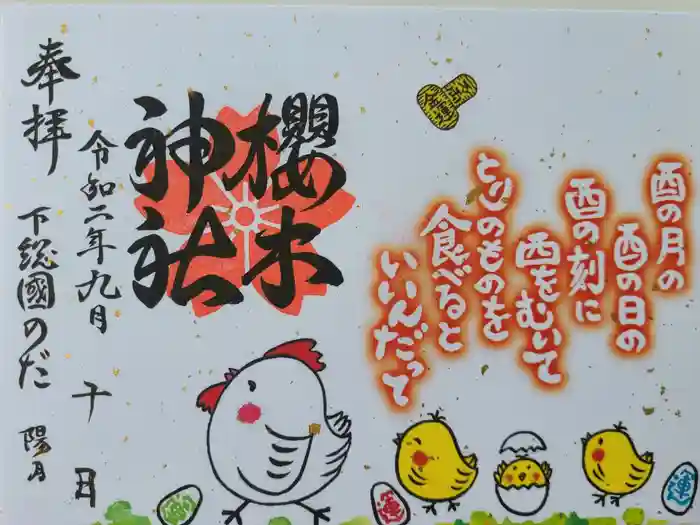 酉の月の
酉の日の
酉の刻に
西をむいて
とりのものを
食べると
いいんだって
櫻木
神社
奉拝
令和二年九月 十日
下総國のだ 陽月
運
運